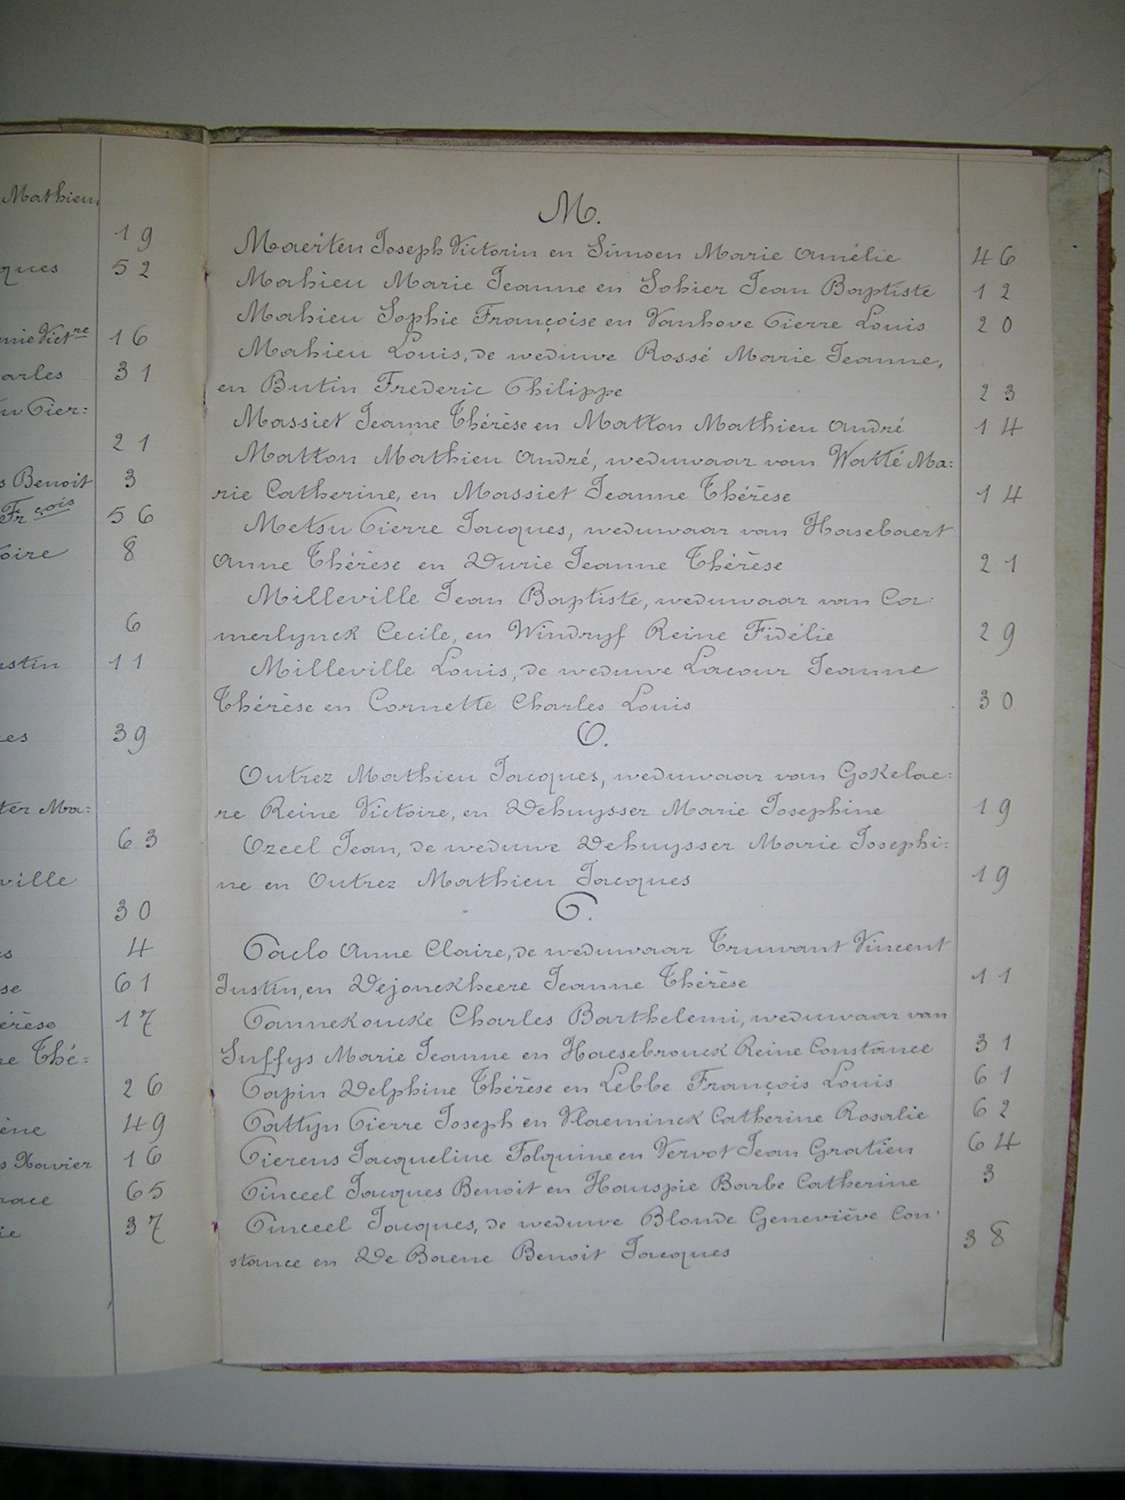 Mathieu,
19
ques 52
mie Vict^re 16
arles 31
Pier:
21
s Benoit 3
Fr^çois 56
toire 8
6
ustin 11
es 39
ter Ma:
63
ville
30
s 4
se 61
érèse 17
ne Thé:
26
ène 49
s Xavier 16
nace 65
ie 37
M.
Maerten Joseph Victorin en Simoen Marie Amélie 46
Mahieu Marie Jeanne en Sohier Jean Baptiste 12
Mahieu Sophie Françoise en Vanhove Pierre Louis 20
Mahieu Louis, de weduwe Rossé Marie Jeanne,
en Butin Frederic Philippe 23
Massiet Jeanne Thérèse en Matton Mathieu André 14
Matton Mathieu André, weduwaar van Watté Ma:
rie Catherine, en Massiet Jeanne Thérèse 14
Metsu Pierre Jacques, weduwaar van Hasebaert
Anne Thérèse en Durie Jeanne Thérèse 21
Milleville Jean Baptiste, weduwaar van Ca:
merlynck Cecile, en Windryf Reine Fidélie 29
Milleville Louis, de weduwe Lacour Jeanne
Thérèse en Cornette Charles Louis 30
O.
Outrez Mathieu Jacques, weduwaar van Gokelae:
re Reine Victoire, en Dehuysser Marie Josephine 19
Ozeel Jean, de weduwe Dehuysser Marie Josephi:
ne en Outrez Mathieu Jacques 19
P.
Paclo Anne Claire, de weduwaar Truwant Vincent
Justin, en Dejonckheere Jeanne Thérèse 11
Pannekoucke Charles Barthelemi, weduwaar van
Suffys Marie Jeanne en Haesebrouck Reine Constance 31
Papin Delphine Thérèse en Lebbe François Louis 61
Pattyn Pierre Joseph en Vlaeminck Catherine Rosalie 62
Pierens Jacqueline Folquine en Vervot Jean Gratien 64
Pinceel Jacques Benoit en Hauspie Barbe Catherine 3
Pinceel Jacques, de weduwe Blonde Geneviève Con:
stance en De Baene Benoit Jacques 38